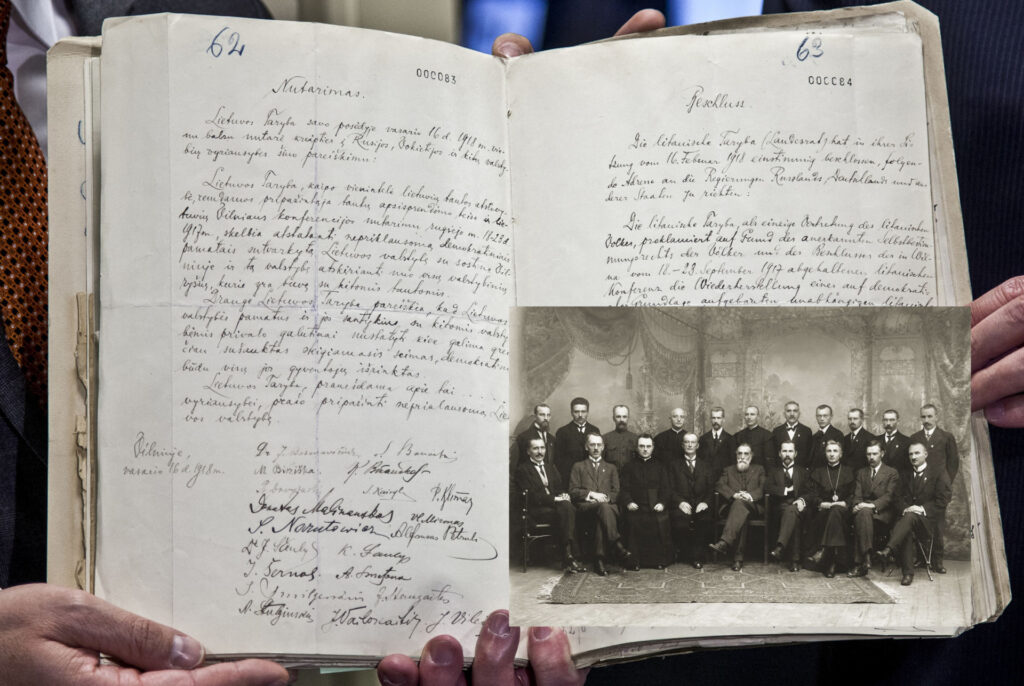 62
000083
Nutarimas.
Lietuvos Taryba savo posėdyje vasario 16 d. 1918 m. vie-
nu balsu nutarė kreiptis į Rusijos, Vokietijos ir kitų valsty-
bių vyriausybes šiuo pareiškimu:
Lietuvos Taryba, kaipo vienintelė lietuvių tautos atstovy-
bė, remdamos pripažintąja tautų apsisprendimo teise ir lie-
tuvių Vilniaus konferencijos nutarimu rugsėjo m. 18-23 d.
1917 m., skelbia atstatanti nepriklausomą demokratiniais
pamatais sutvarkytą Lietuvos valstybę su sostine Vil-
niuje ir tą valstybę atskirianti nuo visų valstybinių
ryšių, kurie yra buvę su kitomis tautomis.
Drauge Lietuvos Taryba pareiškia, kad Lietuvos
valstybės pamatus ir jos santykius su kitomis valsty-
bėmis privalo galutinai nustatyti kiek galima grei-
čiau sušauktas steigiamasis seimas, demokratiniu
būdu visų jos gyventojų išrinktas.
Lietuvos Taryba, pranešdama apie tai . . . . . .
vyriausybei, prašo pripažinti nepriklausomą Lie-
vos valstybę.
Vilniuje,
vasario 16 d. 1918 m.
Dr. J. Basanavičius S. Banaitis
M. Biržiška K. Bizauskas
P. Klimas
Donatas Malinauskas Vl. Mironas
S. Narutowicz Alfonsas Petrulis
Dr. J. Šaulys K. Šaulys
J. Šernas A. Smetona
J. Smilgevičius J. Staugaitis
J. Vailokaitis J. Vil
63
000084
Beschluss.
Die litauische Taryba (Landesrat) hat in ihrer Sit-
zung vom 16. Februar 1918 einstimmig beschlossen, folgen-
de Adresse an die Regierungen Russlands, Deutschlands und an-
derer Staaten zu richten:
Die litauische Taryba, als einzige Vertretung des litauischen
Volkes, proklamiert auf Grund des anerkannten Selbstbestim-
mungsrechts der Völker und des Beschlusses der in Wil-
na vom 18.-23. September 1917 abgehaltenen litauischen
Konferenz die Wiederherstellung eines auf demokrat.
Grundlage aufgebauten, unabhängigen